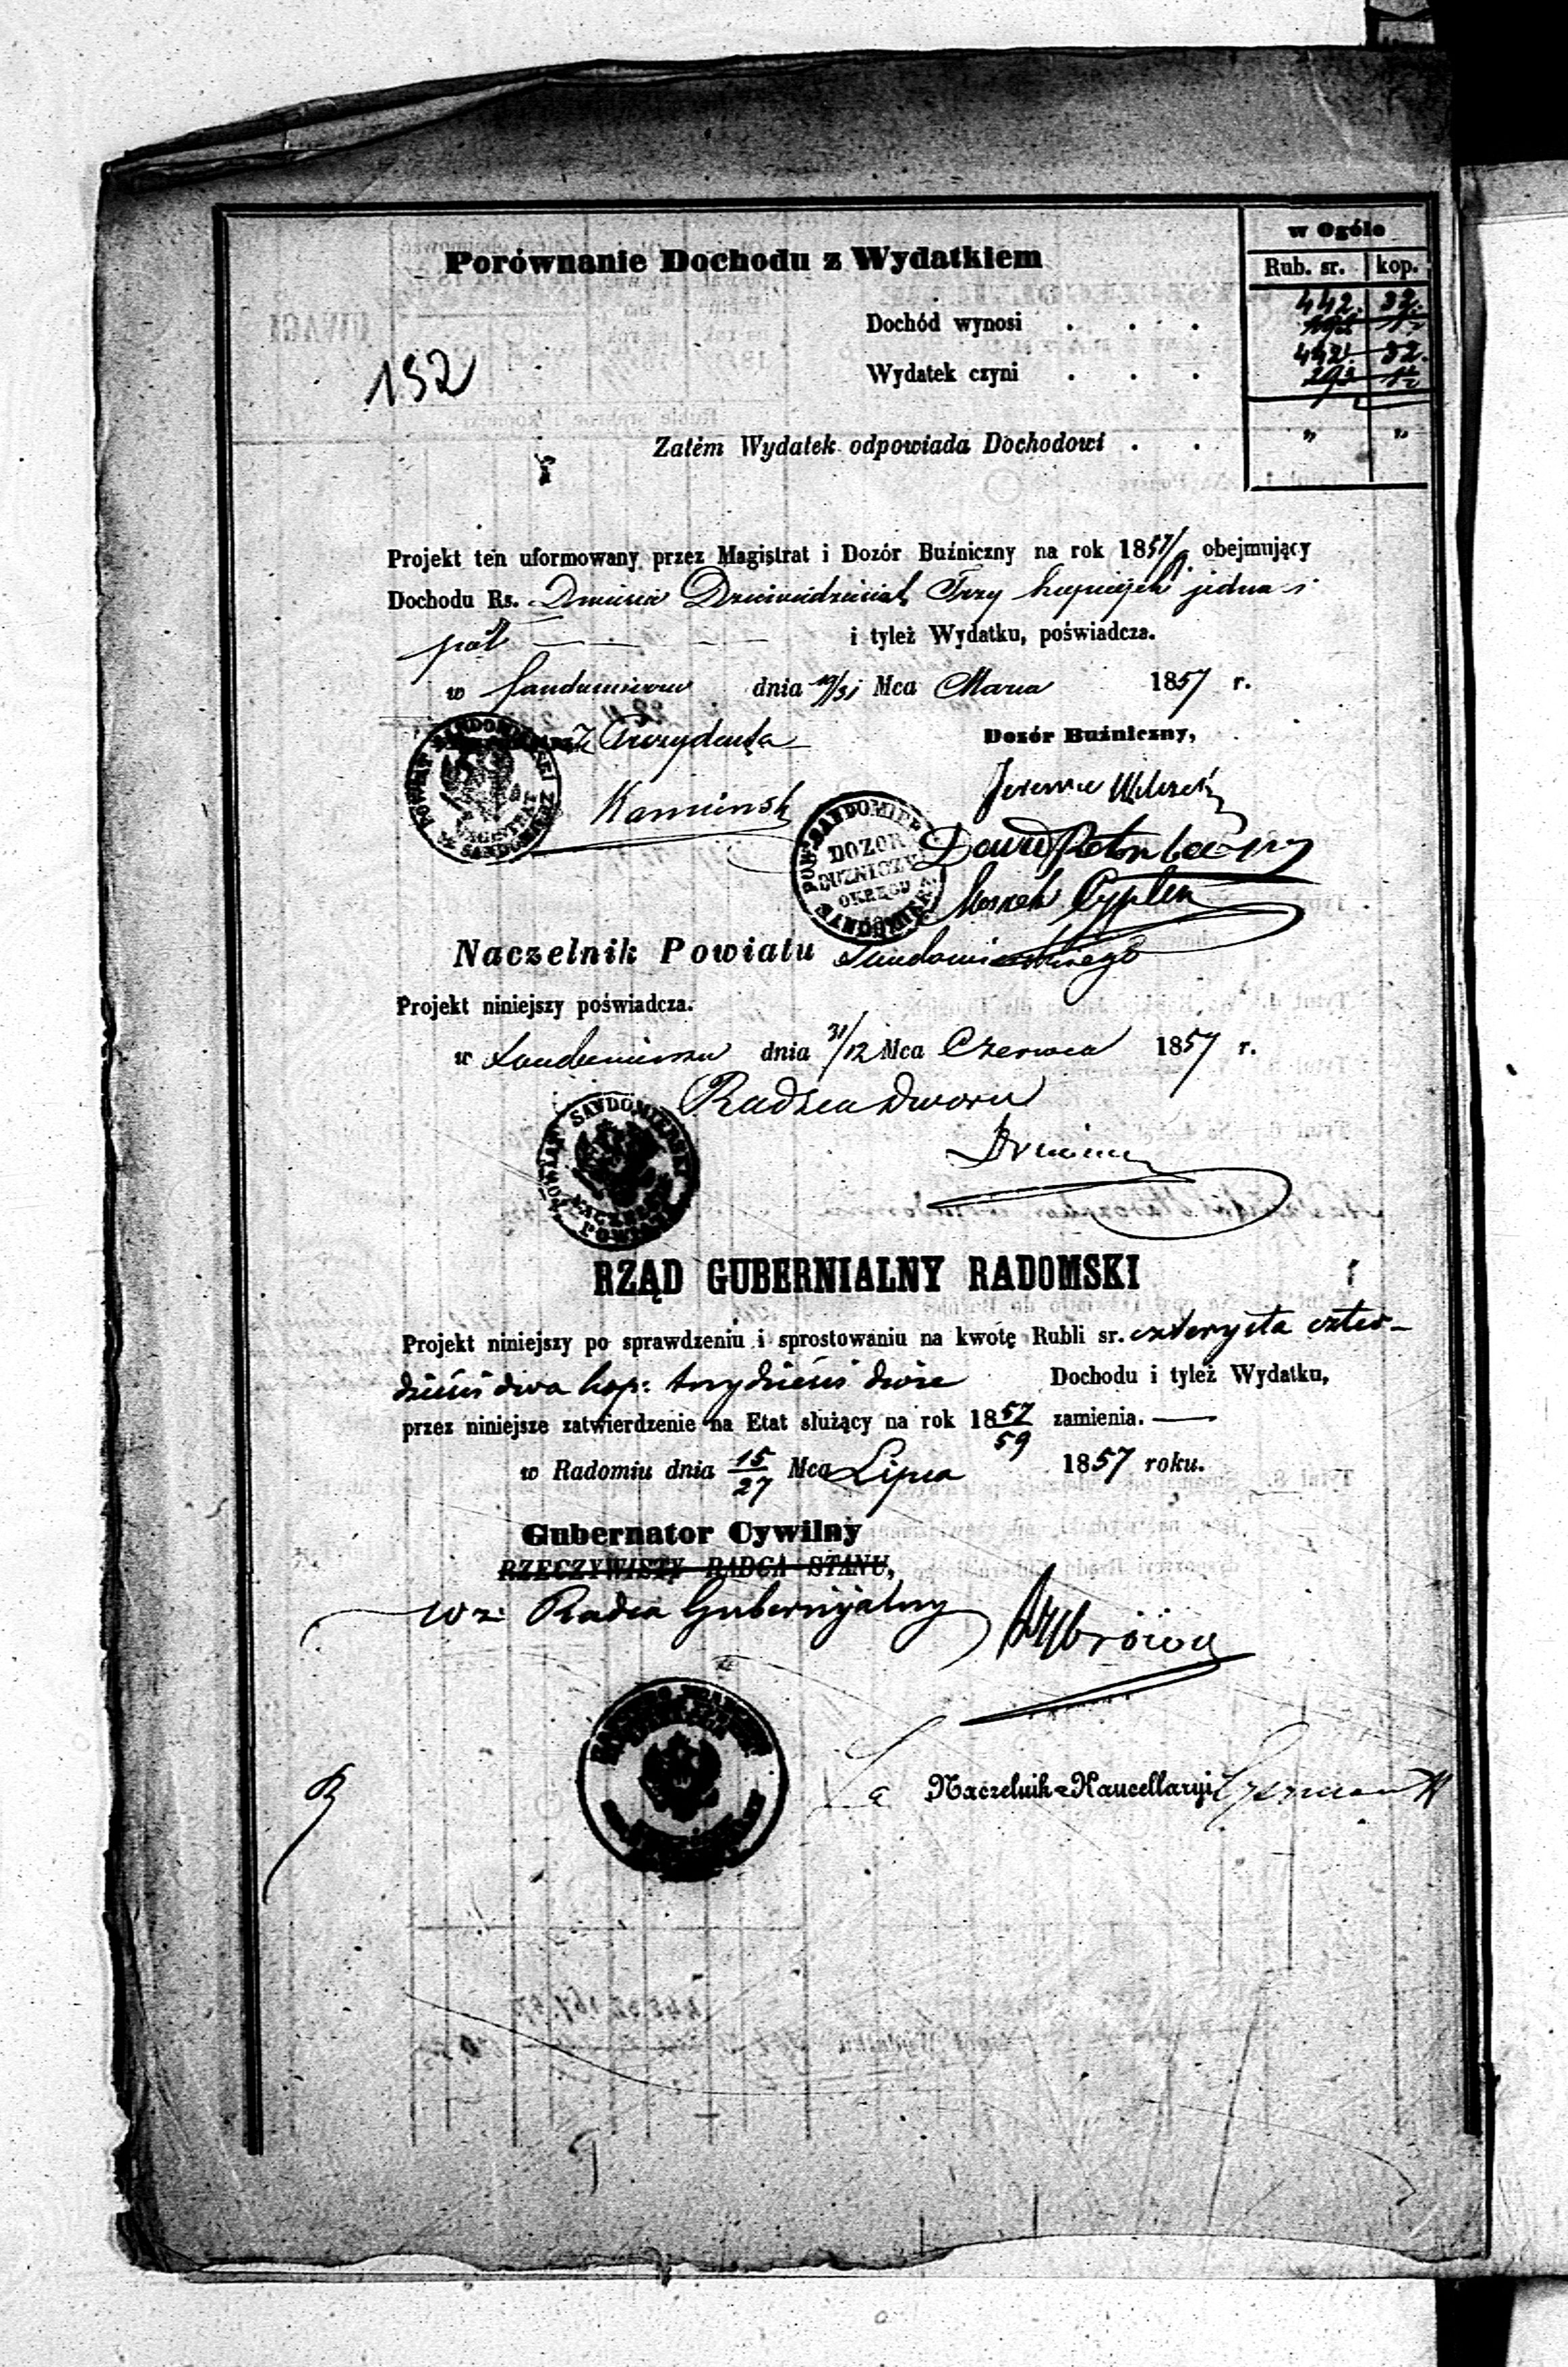 w Ogóle
Porównanie Dochodu z Wydatkiem
Rub. sr. kop.
442. 32.
Dochód wynosi . . .
442. 32.
Wydatek czyni . . .
152
Zatém Wydatek odpowiada Dochodowi . . „ „
Projekt ten uformowany przez Magistrat i Dozór Buźniczny na rok 1857/9 obejmujący
Dochodu Rs. Dwieście Dziewiędziesiąt Trzy kopiejek jedna i
pół — — — i tyleż Wydatku, poświadcza.
w Sandomierzu dnia 19/31 Mca Marca 1857 r.
Prezydenta
Dozór Buźniczny,
Kamiński
DOZOR
BUZNICZY
OKRĘGU
Moszek Cypler
Naczelnik Powiatu Sandomierskiego
Projekt niniejszy poświadcza.
w Sandomierzu dnia 31/12 Mca Czerwca 1857 r.
Radzca Dworu
RZĄD GUBERNIALNY RADOMSKI
Projekt niniejszy po sprawdzeniu i sprostowaniu na kwotę Rubli sr. czterysta czter-
dzieści dwa kop: trzydzieści dwie Dochodu i tyleż Wydatku,
przez niniejsze zatwierdzenie na Etat służący na rok 1857/59 zamienia. —
w Radomiu dnia 15/27 Mca Lipca 1857 roku.
Gubernator Cywilny
RZECZYWISTY RADCA STANU,
wz: Radca Gubernijalny
Za Naczelnik Kancellaryi